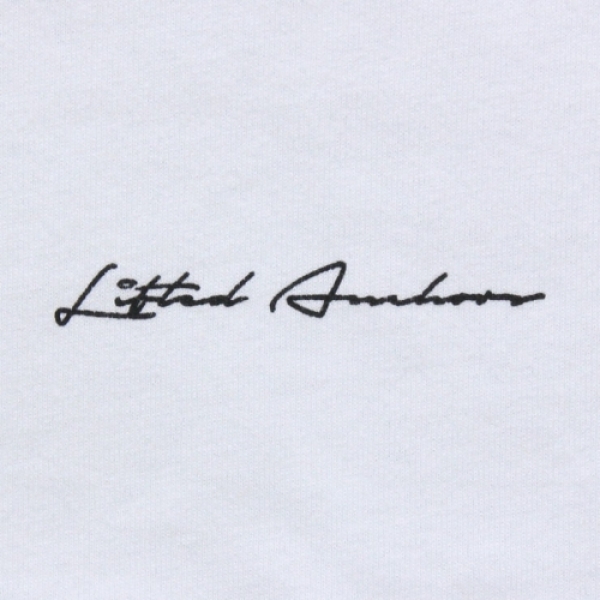 Lifted Anchors